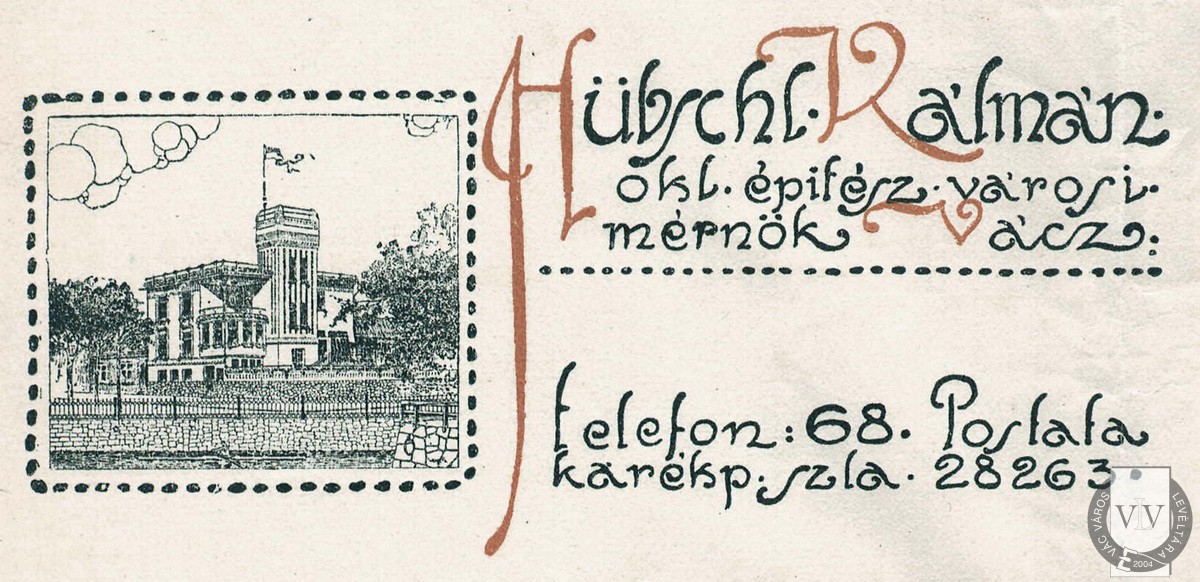 Hübschl. Kálmán.
okl. épitész. városi.
mérnök Vácz.
telefon: 68. Postata
karékp. szla. 28263.
VÁC VÁROS LEVÉLTÁRA
VLV
2004